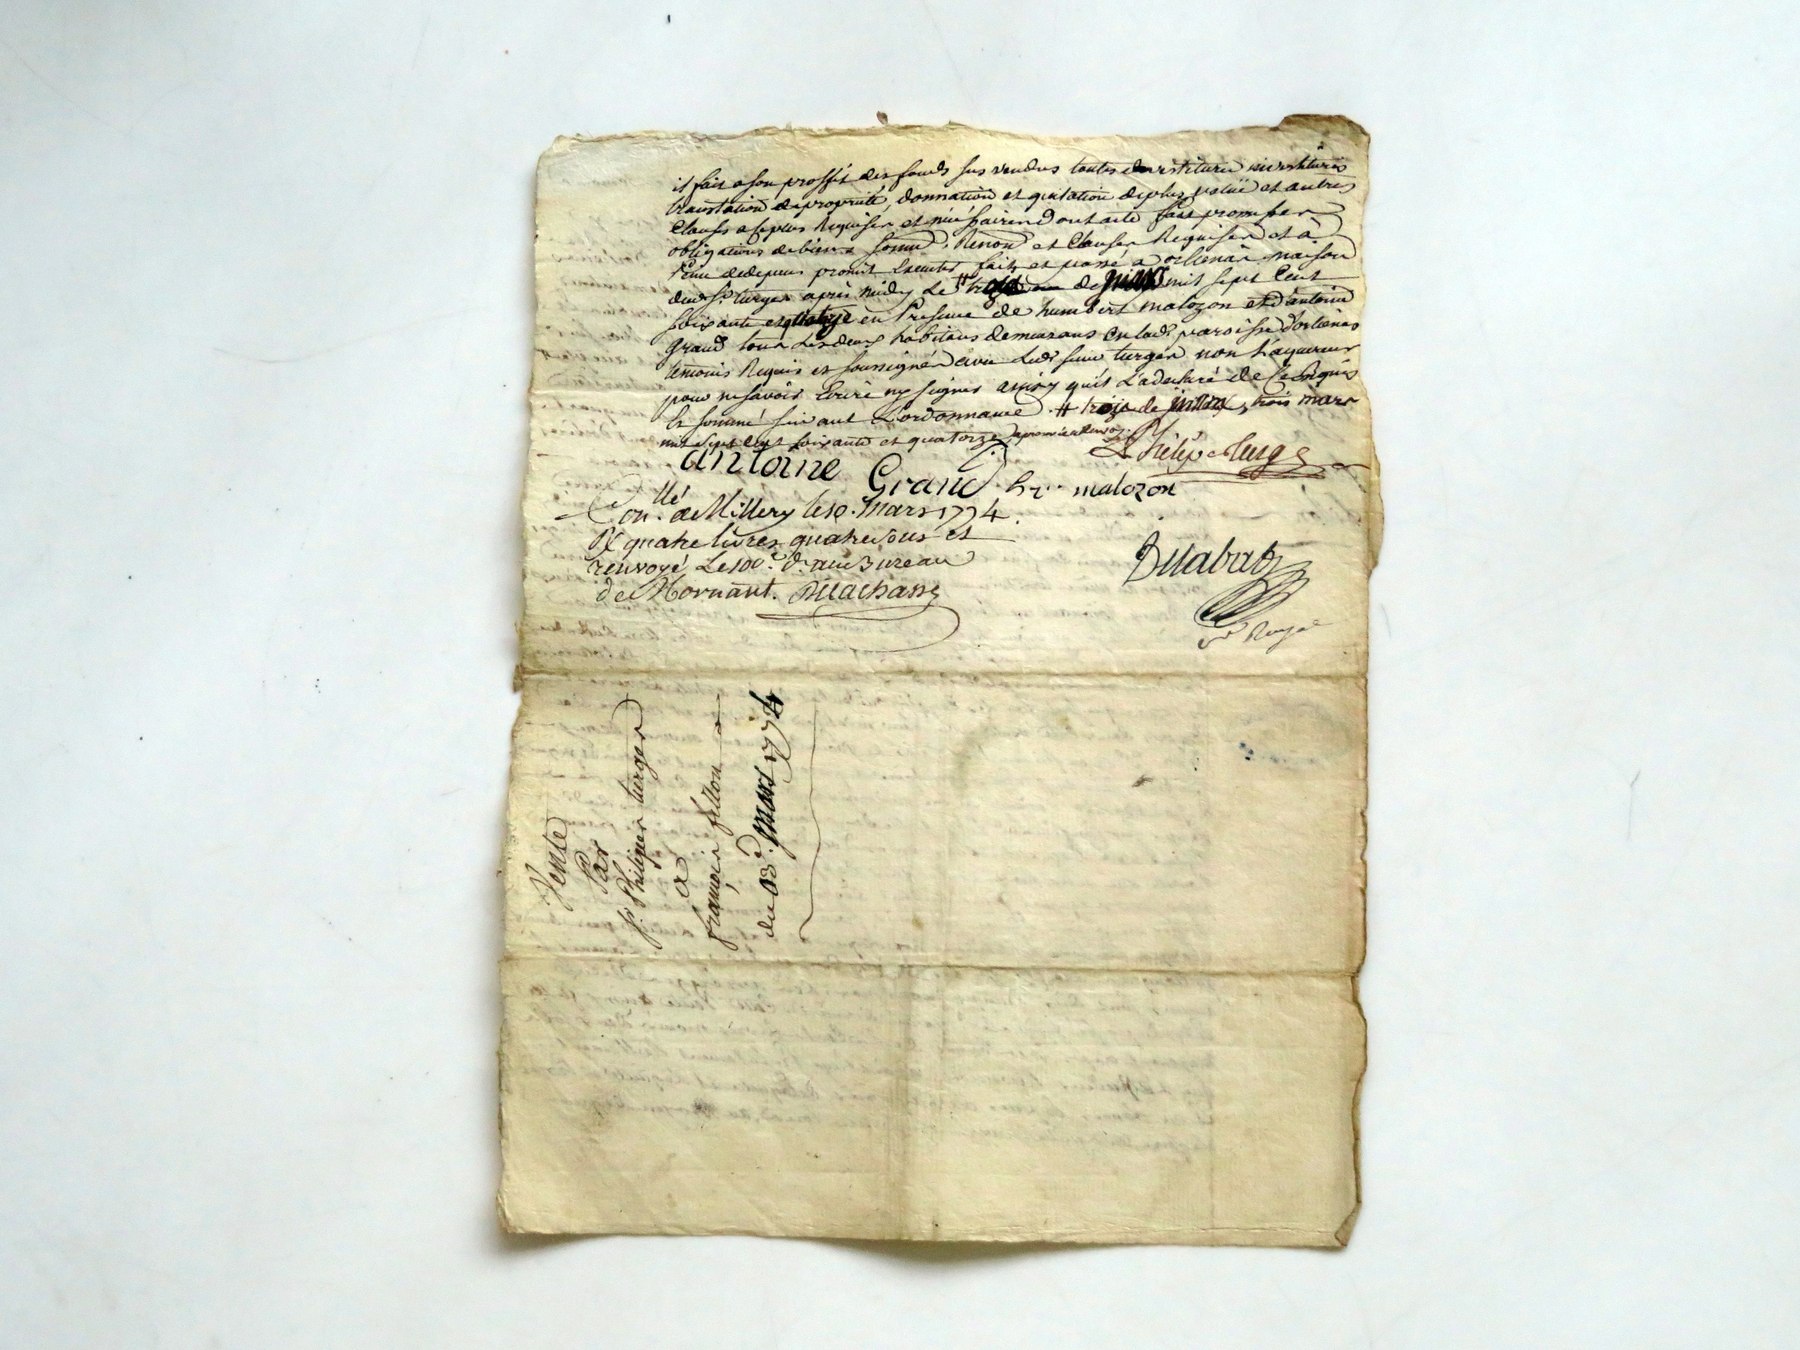 it fait a son proffit des fonds sus vendus toutes devestiture investitures
translation de propriété, donnation et quitation de plus value et autres
Clauses a ce plus Requises et nécéssaires dont acte fait promesses
obligations de biens soumis. Renon et Clauses Requises et à
Peine de depens promis Executer faits et passé à orlienas maison
dud Sr. turges après midy Le # de mars mil sept Cent
soixante et quatorze en Presence de humbert matozon et d'antoine
grand tous Les deux habitans demeurans en lad. paroisse d'orlienas
temoins Requis et soussignés avec Led. sieur turges non L'aquereur
pour ne savoir Ecrire ny signer ainsy qu'il L'a declaré de Ce Requis
et sommé suivant L'ordonnance. # trois de mars, trois mars
mil sept Cent soixante et quatorze
Philipe Turge
antoine Grand hr. matozon
Con.llé de Millery le 10. Mars 1774.
R quatre livres quatre sous et
renvoyé Le 100e. d. au Bureau
de Mornant. Delachasse
Dellabat
nre Royal
Vente
Par
Sr. Philipes turges
a
françois fillon
du 03e. Mars 1774